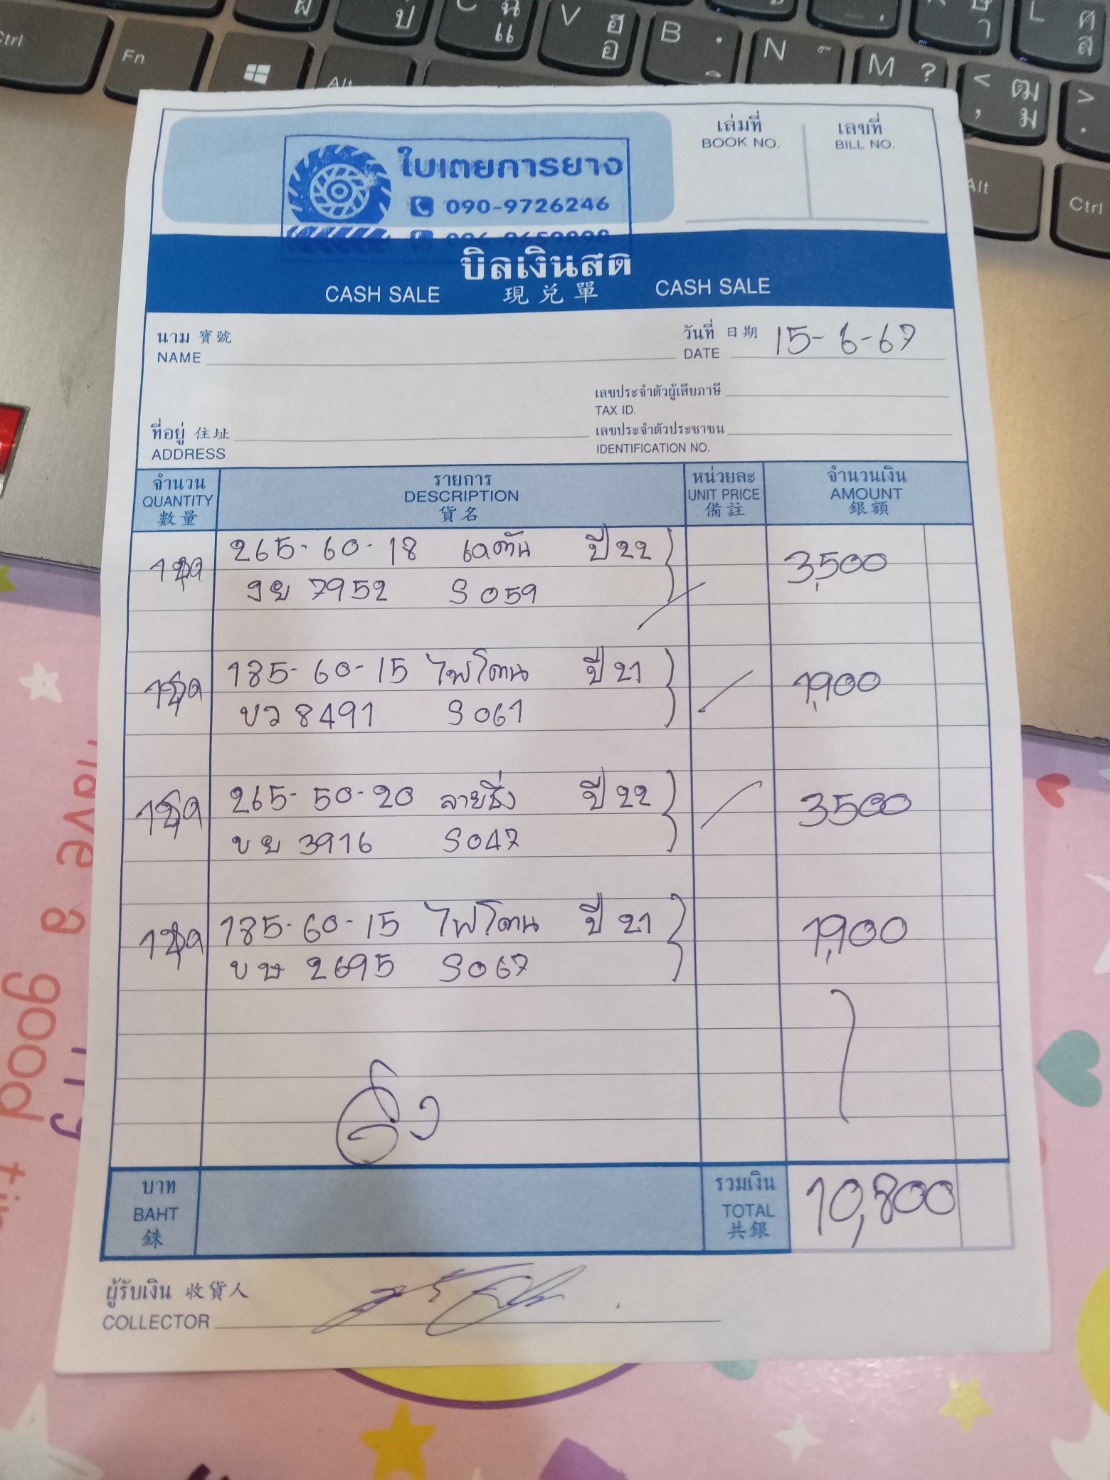 ใบเตยการยาง
090-9726246
เล่มที่ เลขที่
BOOK NO. BILL NO.
บิลเงินสด
CASH SALE 現兌單 CASH SALE
นาม 寶號
NAME
วันที่ 日期
DATE 15-6-67
เลขประจำตัวผู้เสียภาษี
TAX ID.
ที่อยู่ 住址
ADDRESS
เลขประจำตัวประชาชน
IDENTIFICATION NO.
จำนวน รายการ หน่วยละ จำนวนเงิน
QUANTITY DESCRIPTION UNIT PRICE AMOUNT
數量 貨名 備註 銀額
1ชุด 265-60-18 ปี 22 3,500
7952 S059
1ชุด 185-60-15 ไฟโตน ปี 21 1,900
ขว 8491 S061
1ชุด 265-50-20 ลายซิ่ง ปี 22 3500
ขย 3916 S047
1ชุด 185-60-15 ไฟโตน ปี 21 1,900
ขษ 2695 S067
บาท รวมเงิน
BAHT TOTAL 10,800
銖 共銀
ผู้รับเงิน 收貨人
COLLECTOR